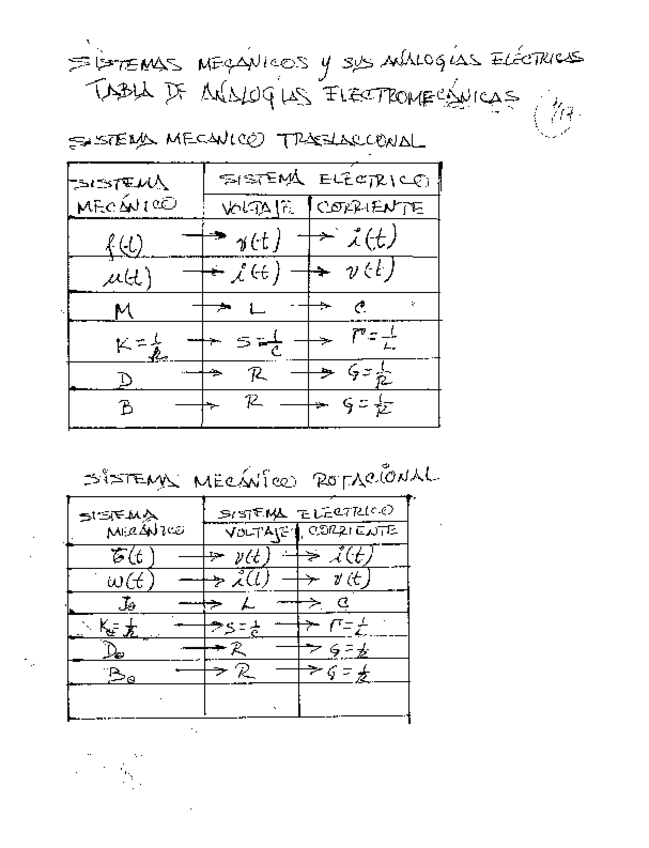 SISTEMAS MECÁNICOS y SUS ANALOGÍAS ELÉCTRICAS
TABLA DE ANALOGÍAS ELECTROMECÁNICAS
SISTEMA MECANICO TRASLACIONAL
SISTEMA MECÁNICO SISTEMA ELÉCTRICO
VOLTAJE CORRIENTE
f(t) → v(t) → i(t)
u(t) → i(t) → v(t)
M → L → C
K = 1/k → S = 1/C → Γ = 1/L
D → R → G = 1/R
B → R → G = 1/R
SISTEMA MECÁNICO ROTACIONAL
SISTEMA MECÁNICO SISTEMA ELÉCTRICO
VOLTAJE CORRIENTE
τ(t) → v(t) → i(t)
ω(t) → i(t) → v(t)
Jθ → L → C
→ S = 1/C → Γ = 1/L
Dθ → R → G = 1/R
Bθ → R → G = 1/R